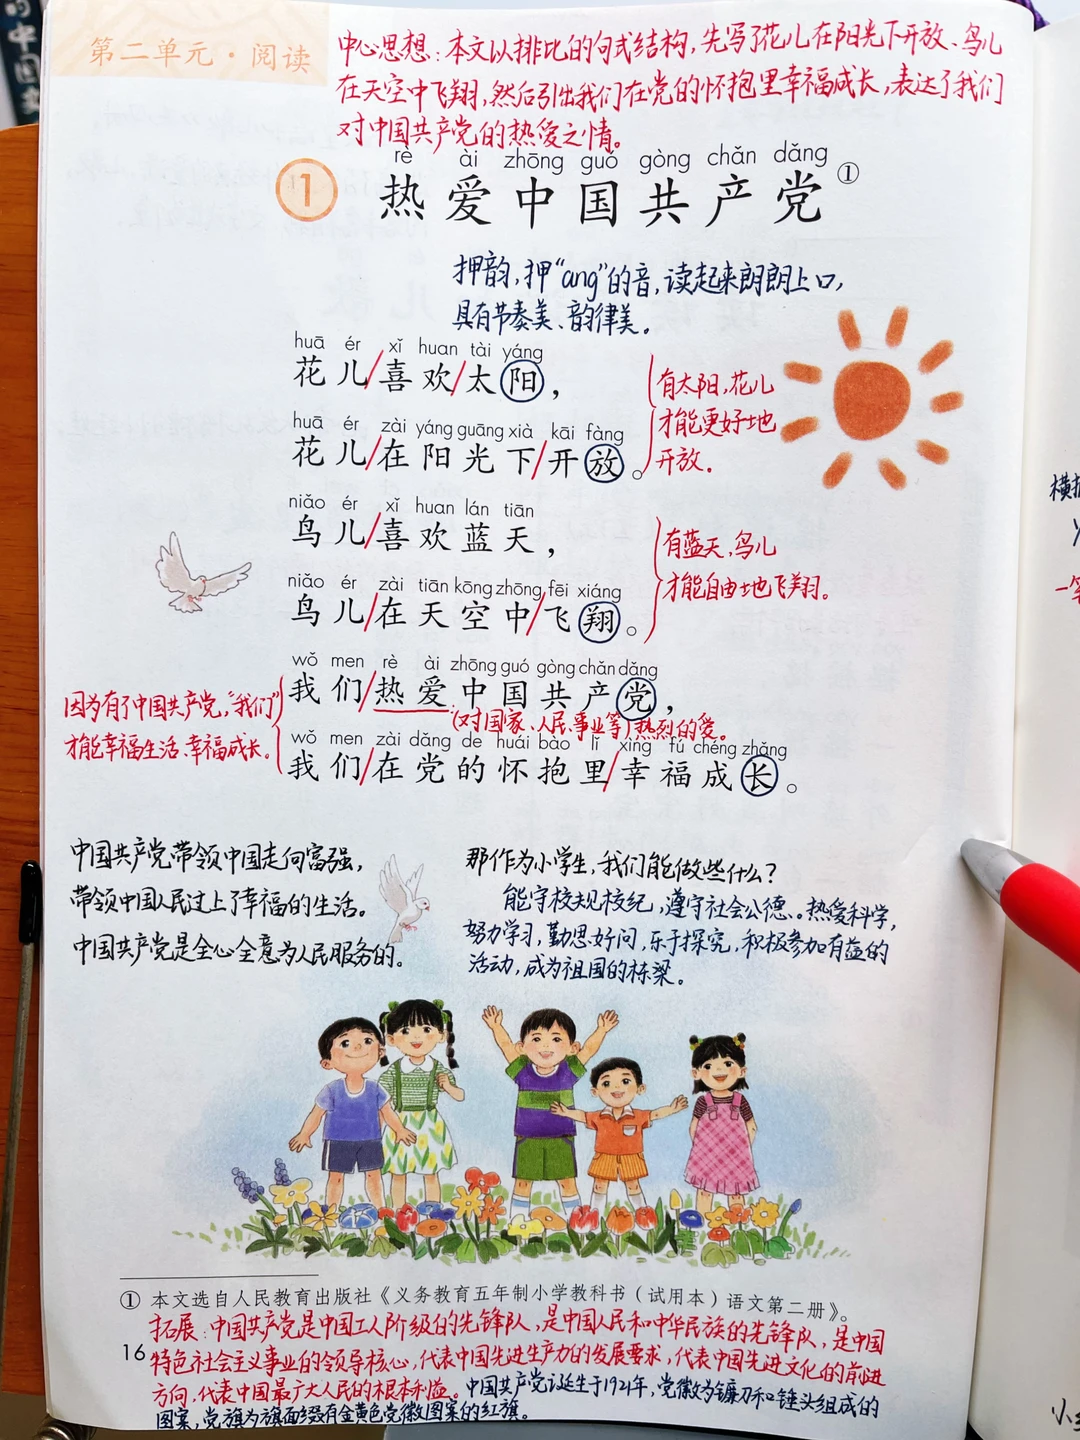 的中国文
第二单元·阅读
中心思想：本文以排比的句式结构，先写了花儿在阳光下开放、鸟儿
在天空中飞翔，然后引出我们在党的怀抱里幸福成长，表达了我们
对中国共产党的热爱之情。
rè ài zhōng guó gòng chǎn dǎng
1 热爱中国共产党①
押韵，押“ang”的音，读起来朗朗上口，
具有节奏美、韵律美。
huā ér xǐ huan tài yáng
花儿/喜欢/太阳，
huā ér zài yáng guāng xià kāi fàng
花儿/在阳光下/开放。
有太阳，花儿
才能更好地
开放。
niǎo ér xǐ huan lán tiān
鸟儿/喜欢蓝天，
niǎo ér zài tiān kōng zhōng fēi xiáng
鸟儿/在天空中/飞翔。
有蓝天，鸟儿
才能自由地飞翔。
wǒ men rè ài zhōng guó gòng chǎn dǎng
我们/热爱中国共产党，
(对国家、人民、事业等)热烈的爱。
wǒ men zài dǎng de huái bào lǐ xìng fú chéng zhǎng
我们/在党的怀抱里/幸福成长。
因为有了中国共产党，“我们”
才能幸福生活、幸福成长。
中国共产党带领中国走向富强，
带领中国人民过上了幸福的生活。
中国共产党是全心全意为人民服务的。
那作为小学生，我们能做些什么？
能守校规校纪，遵守社会公德、。热爱科学，
努力学习，勤思好问，乐于探究，积极参加有益的
活动，成为祖国的栋梁。
① 本文选自人民教育出版社《义务教育五年制小学教科书（试用本）语文第二册》。
拓展：中国共产党是中国工人阶级的先锋队，是中国人民和中华民族的先锋队，是中国
特色社会主义事业的领导核心，代表中国先进生产力的发展要求，代表中国先进文化的前进
方向，代表中国最广大人民的根本利益。中国共产党诞生于1921年，党徽为镰刀和锤头组成的
图案，党旗为旗面缀有金黄色党徽图案的红旗。
16
横
一
小